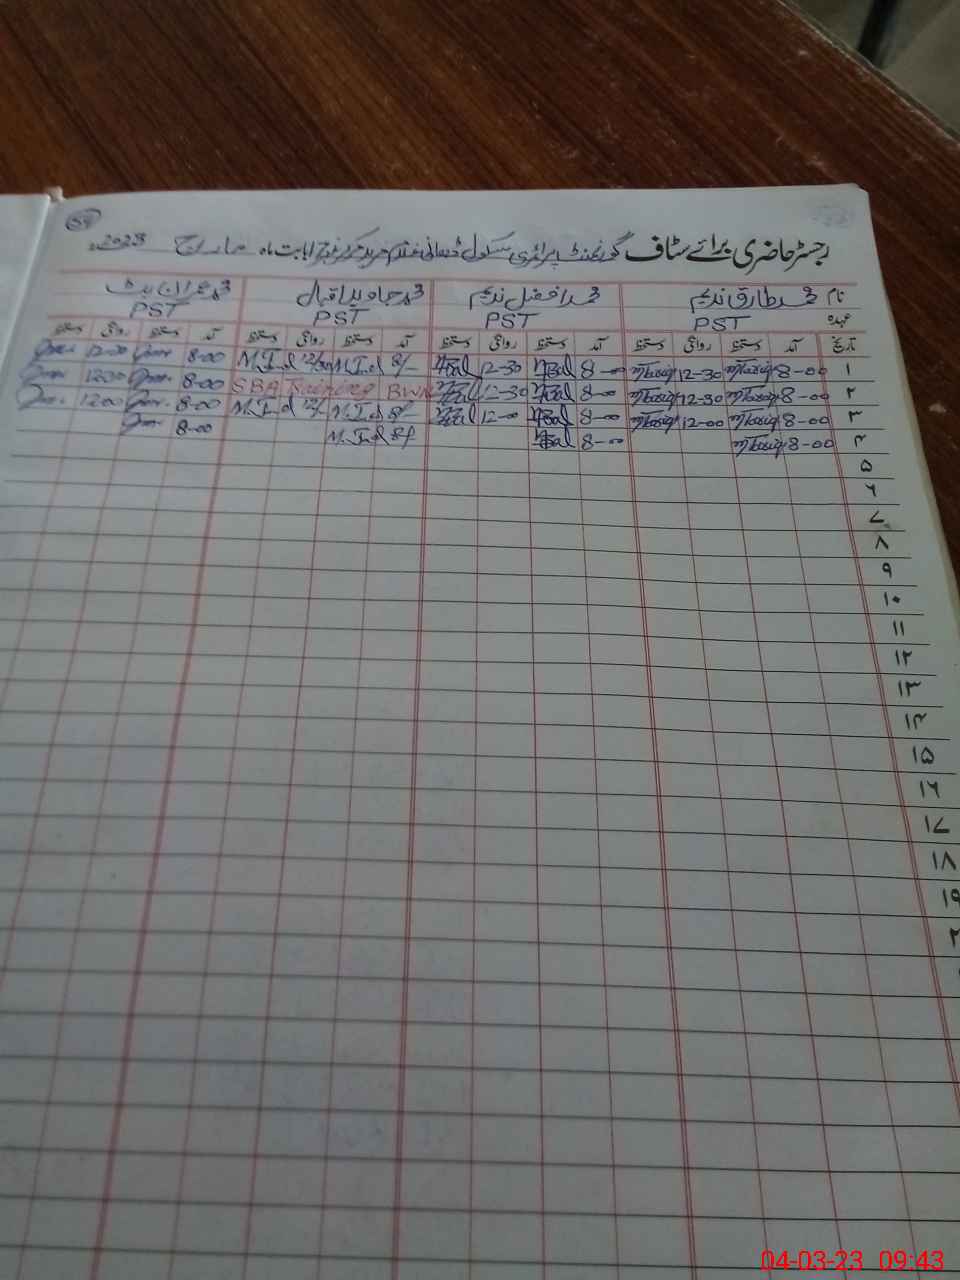 59
رجسٹر حاضری برائے سٹاف گورنمنٹ پرائمری سکول بابت ماہ مارچ 2023ء
نام محمد طارق ندیم محمد افضل ندیم محمد جاوید اقبال محمد عمران بٹ
عہدہ PST PST PST PST
تاریخ آمد دستخط روانگی دستخط آمد دستخط روانگی دستخط آمد دستخط روانگی دستخط آمد دستخط روانگی دستخط
۱ 8-00 MTariq 12-30 MTariq 8-00 12-30 8/- M.I.d 12/30 M.I.d 8-00 12-30
۲ 8-00 MTariq 12-30 MTariq 8-00 12-30 SBA Training BWN 8-00 1230
۳ 8-00 MTariq 12-00 MTariq 8-00 12-00 8/- M.I.d 12/- M.I.d 8-00 1200
۴ 8-00 MTariq 8-00 8/- M.I.d 8-00
۵
۶
۷
۸
۹
۱۰
۱۱
۱۲
۱۳
۱۴
۱۵
۱۶
۱۷
۱۸
۱۹
04-03-23 09:43